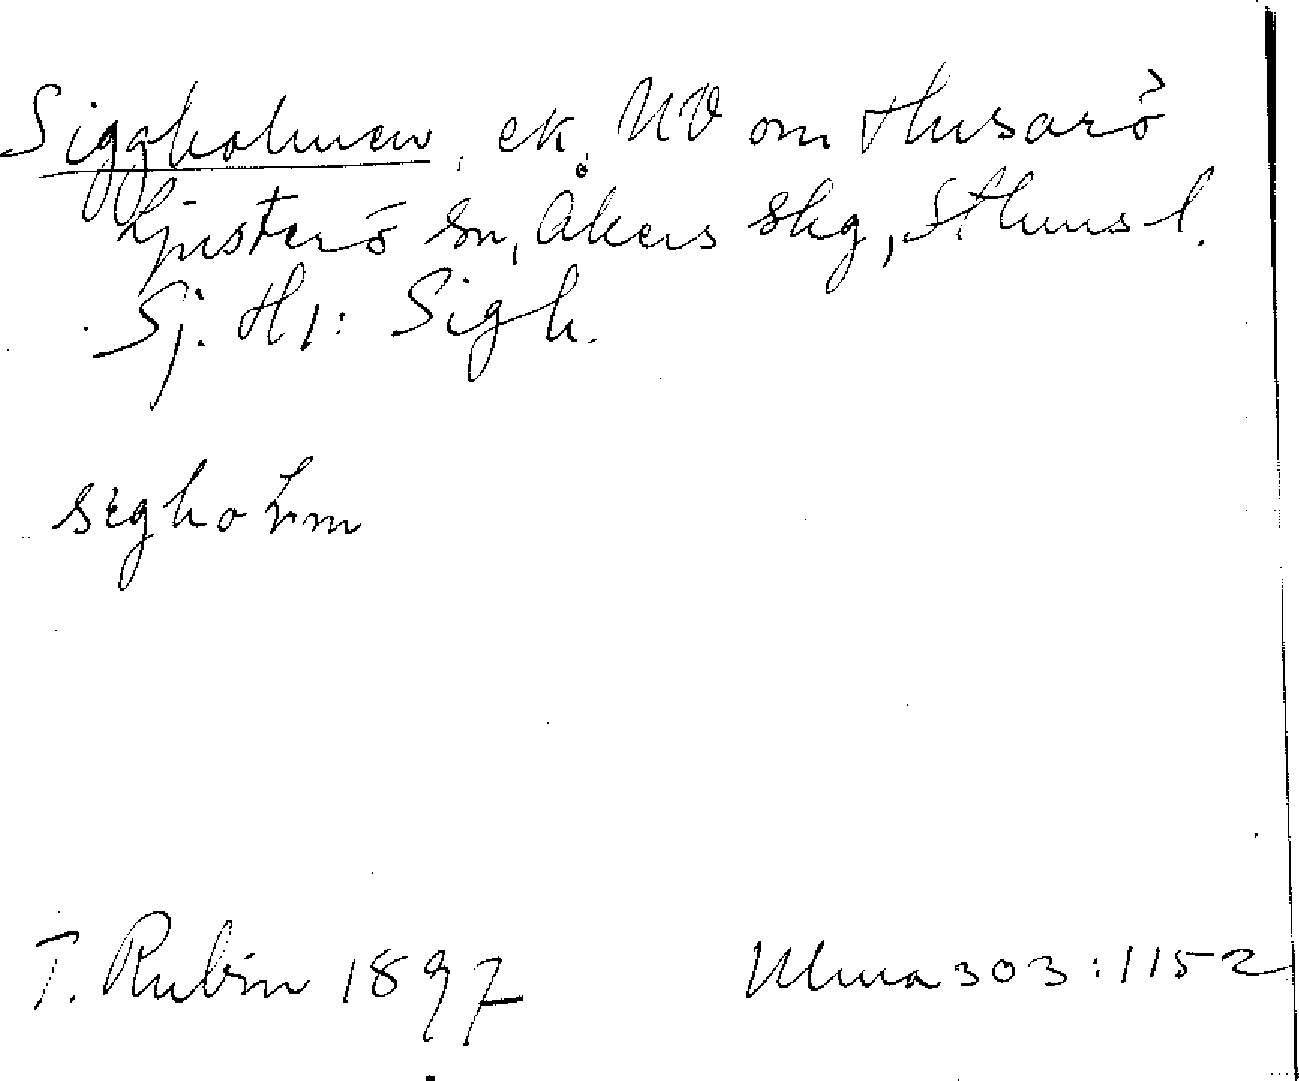 Siggholmen, ek, NV om Husarö
Ljusterö sn, Åkers skg, Sthms l.
Sj. H1: Sigh.
sigholm
T. Rubin 1897
Ulma 303:1152